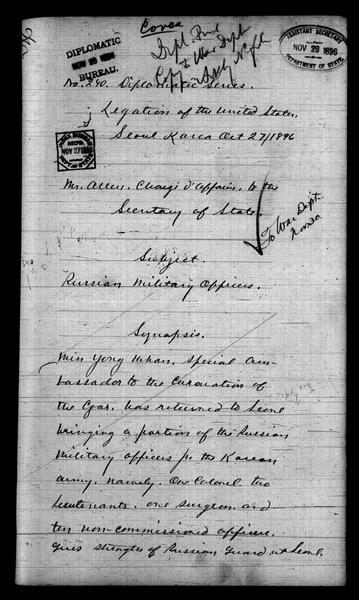 Corea
DIPLOMATIC
NOV 28 1896
BUREAU.
ASSISTANT SECRETARY
NOV 28 1896
DEPARTMENT OF STATE
to War Dept
No. 240. Diplomatic Series.
Legation of the United States,
Seoul Korea Oct 27/1896
NOV 27 1896
Mr. Allen, Chargé d'Affaires, to the
Secretary of State.
To War Dept.
Nov 30
Subject.
Russian Military Officers.
Synopsis.
Min Yong Whan, Special Am-
bassador to the Coronation of
the Czar, has returned to Seoul
bringing a portion of the Russian
Military officers for the Korean
army, namely, One Colonel, two
lieutenants, one surgeon and
ten non-commissioned officers.
Gives strength of Russian Guard at Seoul.